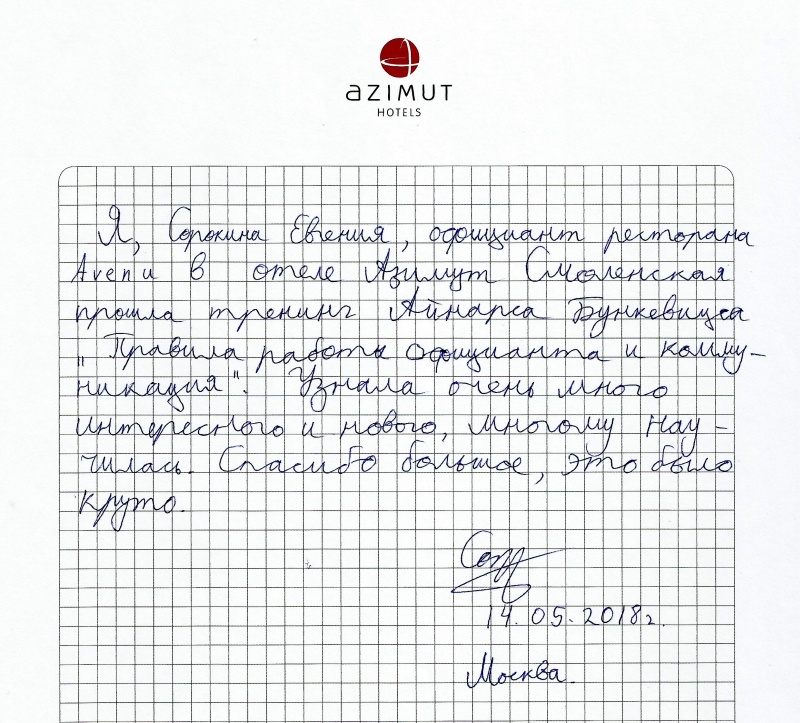 AZIMUT
HOTELS
Я, Сорокина Евгения, официант ресторана
Avenu в отеле Азимут Смоленская
прошла тренинг Айнарса Бункевицса
„Правила работы официанта и комму-
никация". Узнала очень много
интересного и нового, многому нау-
чилась. Спасибо большое, это было
круто.
14.05.2018г.
Москва.